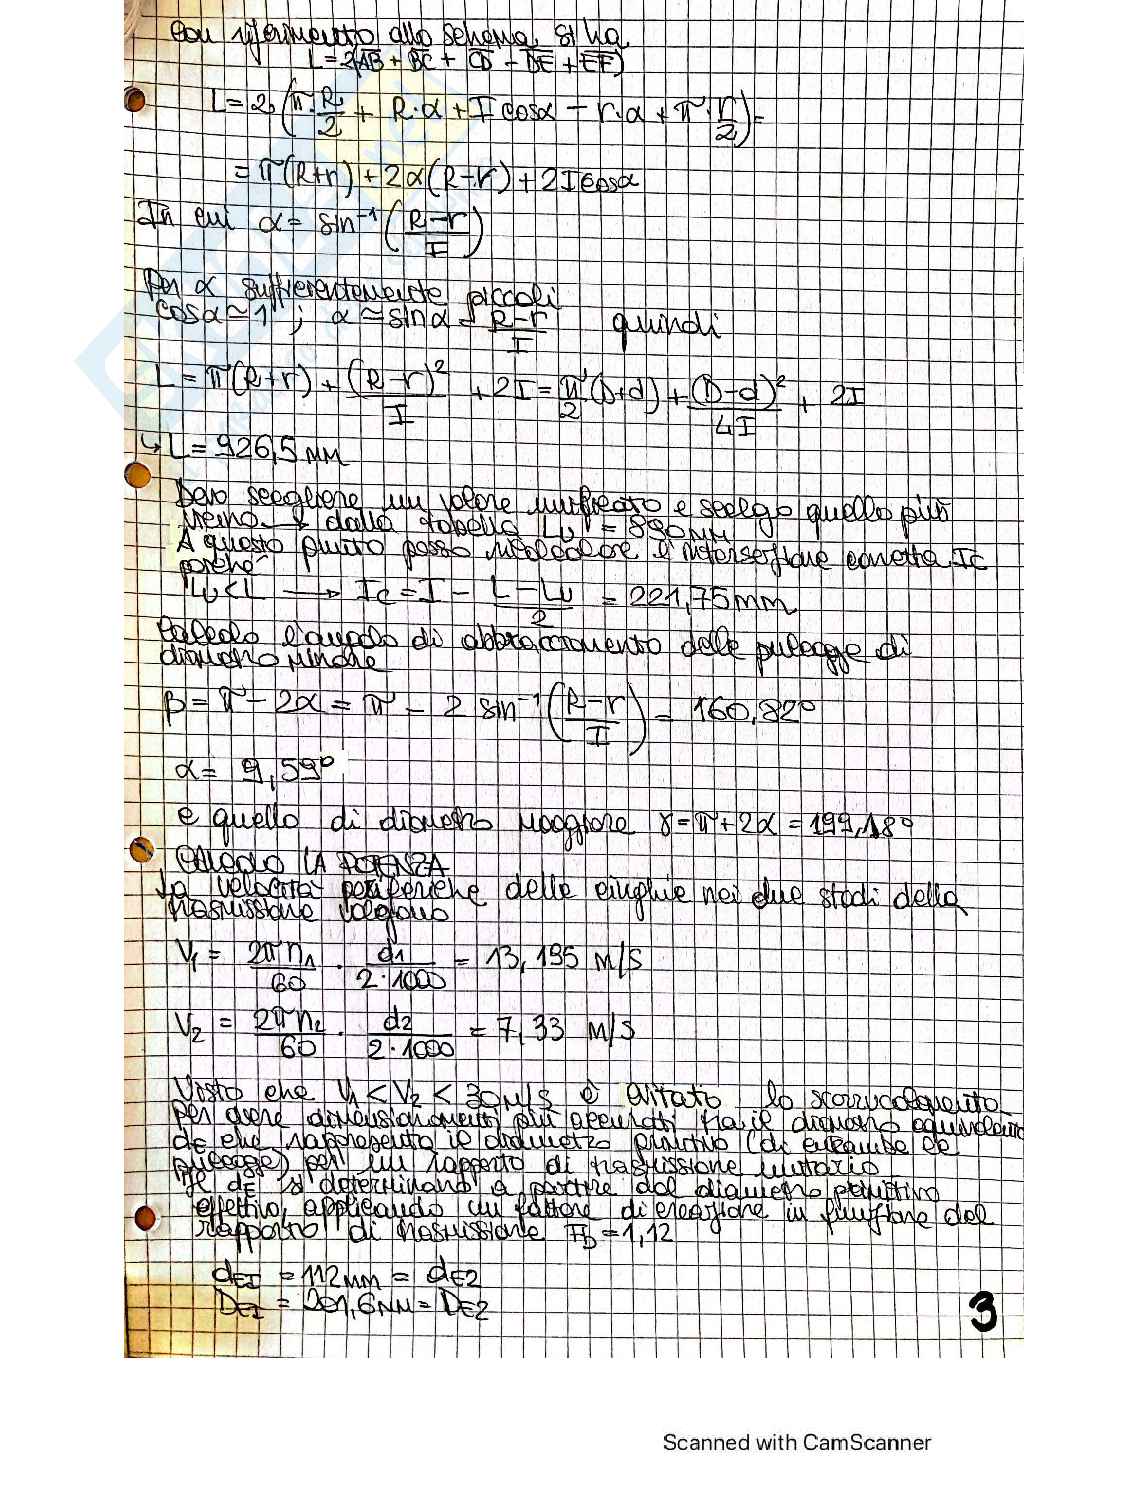 Con riferimento allo schema si ha
L=2(AB+BC+CD-DE+EF)
L=2(π·R/2 + R·α + I cosα - r·α + π·r/2)=
= π(R+r)+2α(R-r)+2I cosα
In cui α= sin⁻¹(R-r/I)
Per α sufficientemente piccoli
cosα≃1 ; α≃sinα = R-r/I quindi
L= π(R+r) + (R-r)²/I + 2I = π/2(D+d) + (D-d)²/4I + 2I
↳ L= 926,5 mm
Devo scegliere un valore unificato e scelgo quello più
vicino → dalla tabella Lu = 890 mm
A questo punto posso ricalcolare l'interasse corretta Ic
poiché
Lu<L → Ic = I - L-Lu/2 = 221,75 mm
Calcolo l'angolo di abbracciamento delle pulegge di
diametro minore
β= π-2α = π - 2 sin⁻¹(R-r/I) = 160,82°
α= 9,59°
e quello di diametro maggiore γ=π+2α = 199,18°
CALCOLO LA POTENZA
La velocità periferiche delle cinghie nei due stadi della
trasmissione valgono
V₁= 2πn₁/60 · d₁/2·1000 = 13,195 m/s
V₂ = 2πn₂/60 · d₂/2·1000 = 7,33 m/s
Visto che V₁<V₂<30m/s è evitato lo
Per avere dimensionamenti più accurati il diametro equivalente
dE che rappresenta il diametro primitivo (di entrambe le
pulegge) per un rapporto di trasmissione unitario
I dE si determinano a partire dal diametro primitivo
effettivo, applicando un fattore di in funzione del
rapporto di trasmissione FD=1,12
dEI = 112mm = dE2
DEI = 201,6mm = DE2
3
Scanned with CamScanner